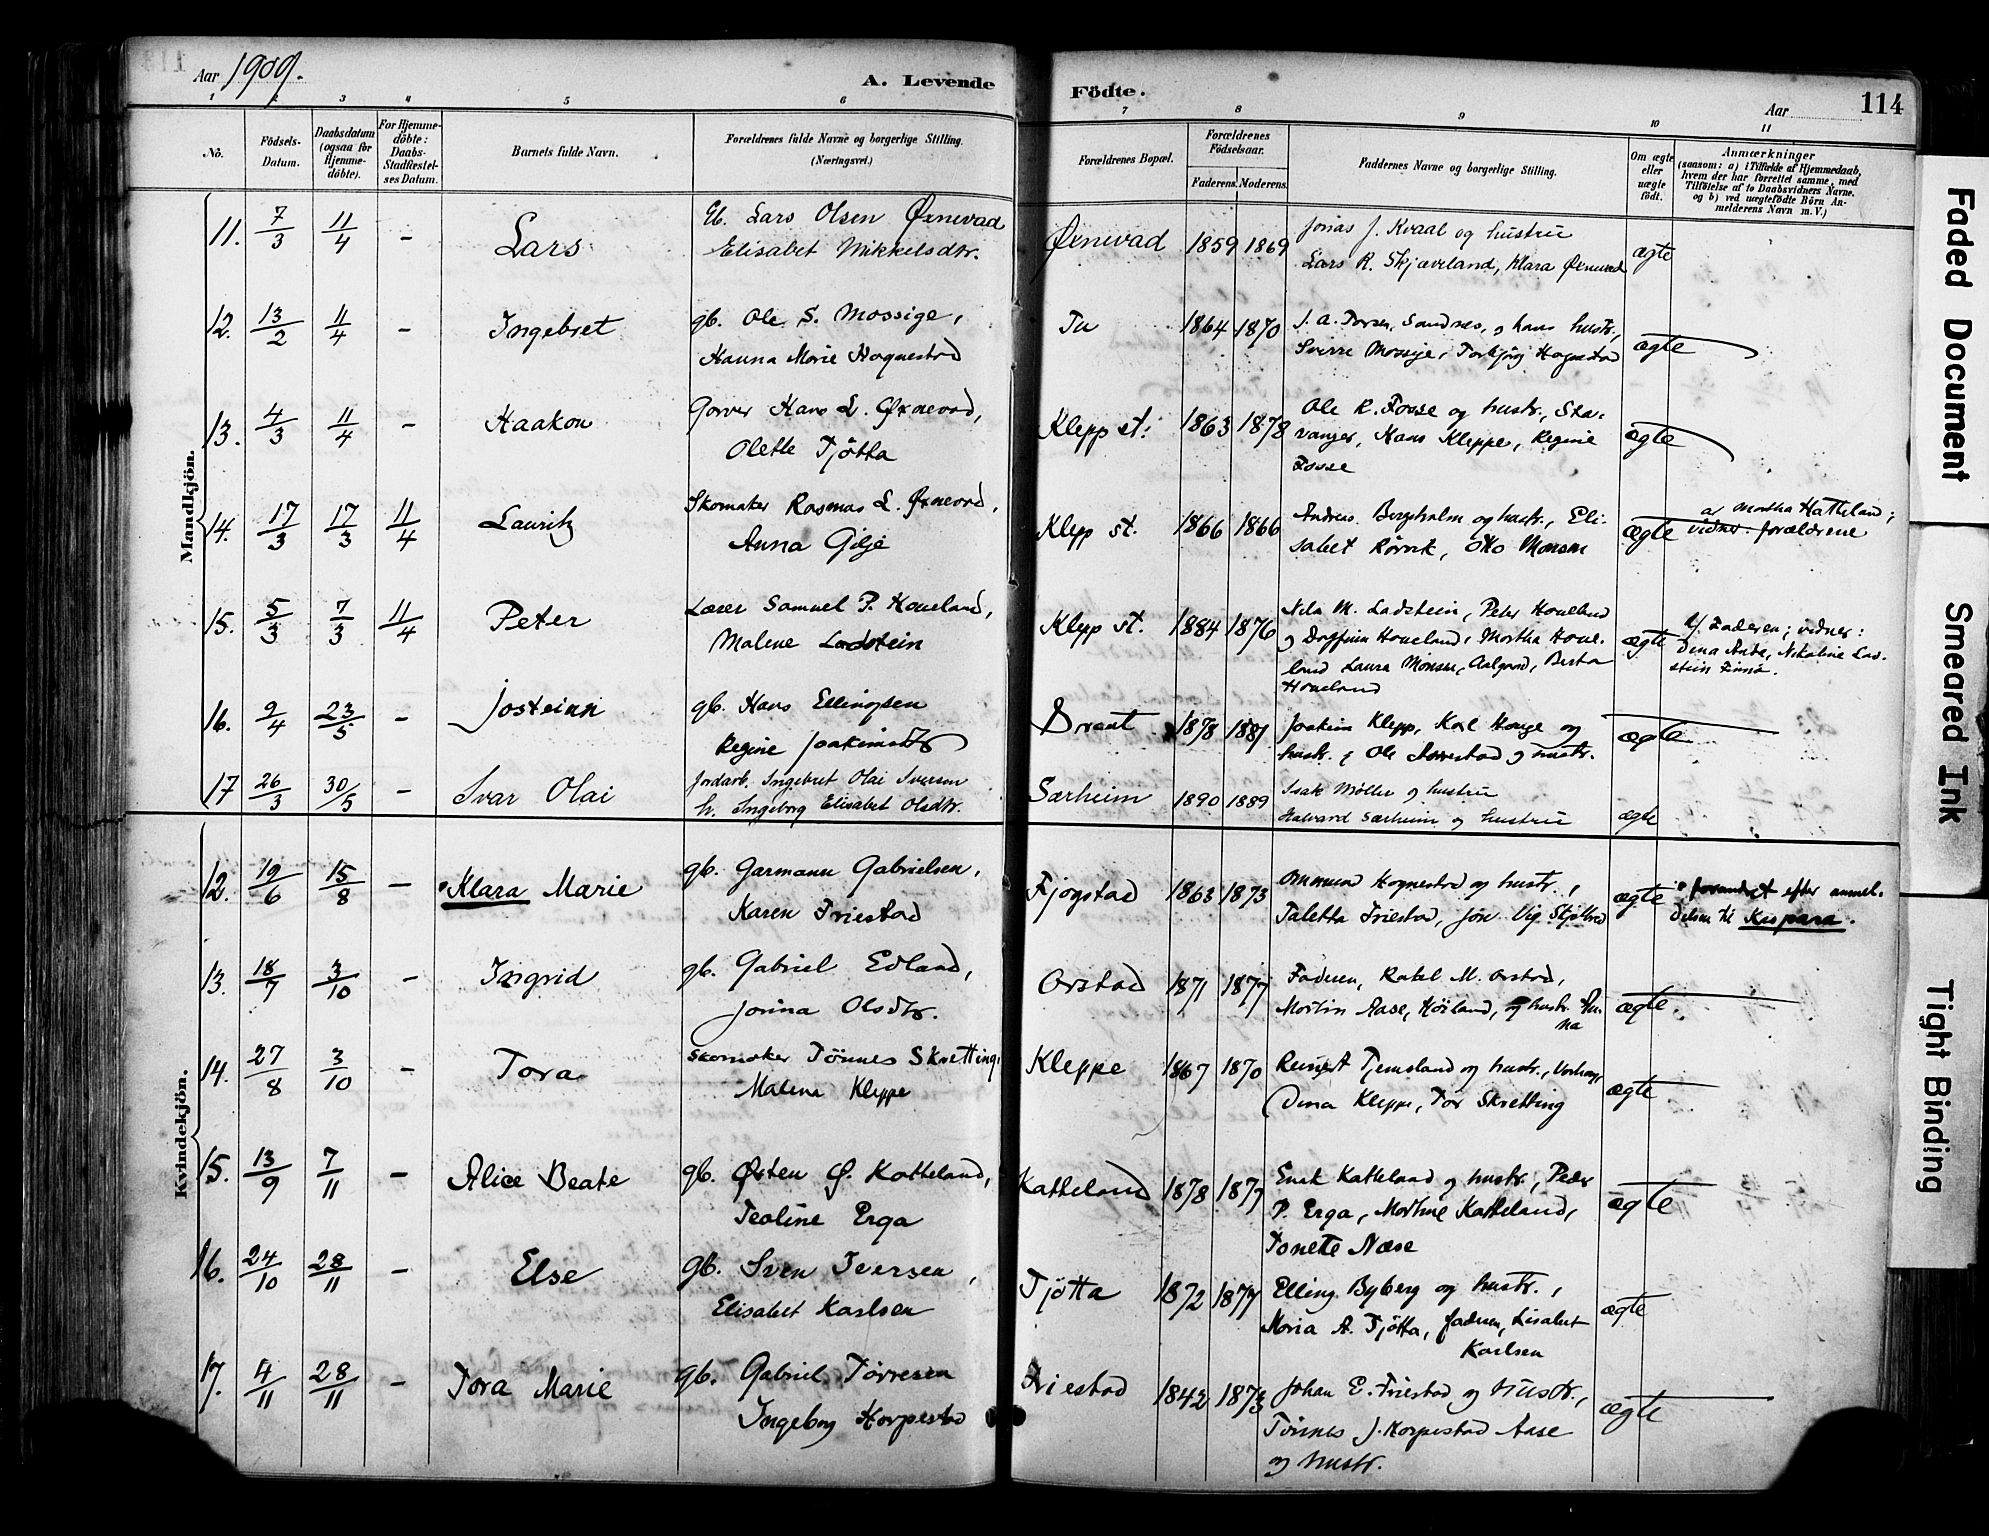 Aar 1909.
A. Levende
Födte.
Aar
114
1 2 3 4 5 6 7 8 9 10 11
No.
Födsels-Datum.
Daabsdatum (ogsaa for Hjemme-döbte).
For Hjemme-döbte: Daabs-Stadfæstel-ses Datum.
Barnets fulde Navn.
Forældrenes fulde Navne og borgerlige Stilling. (Næringsvei.)
Forældrenes Bopæl.
Forældrenes Födselsaar.
Faderens. Moderens.
Faddernes Navne og borgerlige Stilling.
Om ægte eller uægte født.
Anmærkninger
(saasom: a) i Tilfælde af Hjemmedaab, hvem der har forrettet samme, med Tilföielse af to Daabsvidners Navne, og b) ved uægtefødte Börn An-melderens Navn m. V.)
Mandkjön.
11. 7/3 11/4 - Lars Gb. Lars Olsen Øxnevad Øxnevad 1859 1869 Jonas J. Kvaal og hustru ægte
Elisabet Mikkelsdtr. Lars R. Skjæveland, Klara Øxnevad
12. 13/2 11/4 - Ingebret gb. Ole S. Mossige, Tu 1864 1870 J. A. Torsen, Sandnes, og hans hustr., ægte
Hanna Marie Hognestad Sverre Mossige, Torbjörg Hognestad
13. 4/3 11/4 - Haakon Garver Hans L. Øxnevad, Klepp st. 1863 1878 Ole R. Fosse og hustr., Sta-
Olette Tjötta vanger, Hans Kleppe, Regine ægte
Fosse
14. 17/3 17/3 11/4 Lauritz Skomaker Rasmus L. Øxnevad, Klepp st. 1866 1866 Andreas Bergholm og hustr., Eli- ægte av Martha Hatteland;
Anna Gilje sabet Rörvik, Otto Monsen vidner: forældrene
15. 5/3 7/3 11/4 Peter Lærer Samuel P. Haueland, Klepp st. 1884 1876 Nils M. Ladstein, Peter Haueland
Malene Ladstein og Dagfinn Haueland, Martha Haue- ægte af Faderen; vidner:
land Laura Monsen, Aalgaard, Berta Dina Anda, Nikoline Lad-
Haueland stein Finnø.
16. 9/4 23/5 - Josteinn gb. Hans Ellingsen 1878 1887 Joakim Klepp, Karl Hauge og ægte
Regine Joakimsdtr hustr. & Ole og hustr.
17 26/3 30/5 - Ivar Olai Jordarb. Ingebret Olai Iversen Særheim 1890 1889 Isak Møller og hustru
h. Ingeborg Elisabet Olsdtr. Halvard Særheim og hustru ægte
Kvindekjön.
12. 19/6 15/8 - Klara Marie gb. Garmann Gabrielsen, Fjogstad 1863 1873 Ommund Hognestad og hustr., ægte forandret efter anmel-
Karen Friestad Taletta Friestad, Jon Vig delsen til Kaspara.
13. 18/7 3/10 - Ingrid gb. Gabriel Edland, Orstad 1871 1877 Faderen, Rakel M. Orstad,
Jorina Olsdtr. Martin Aase, Höiland, og hustr. ægte
14. 27/8 3/10 - Tora Skomaker Tönnes Skretting, Kleppe 1867 1870 Reinert Tjemsland og hustr., Varhaug, ægte
Malena Kleppe Dina Kleppe, Tor Skretting
15. 13/9 7/11 - Alice Beate gb. Østen Ø. Katteland, Katteland 1878 1877 Enok Katteland og hustr., Peder ægte
Teoline Erga P. Erga, Martine Katteland,
Tonette Næse
16. 24/10 28/11 - Else gb. Sven Iversen, Tjötta 1872 1877 Elling Byberg og hustr., ægte
Elisabet Karlsen Maria A. Tjötta, faderen, Lisabet
Karlsen
17. 4/11 28/11 - Tora Marie gb. Gabriel Törresen Friestad 1842 1873 Johan E. Friestad og hustr., ægte
Ingeborg Horpestad Tönnes J. Horpestad Aase
og hustr.
Faded Document
Smeared Ink
Tight Binding